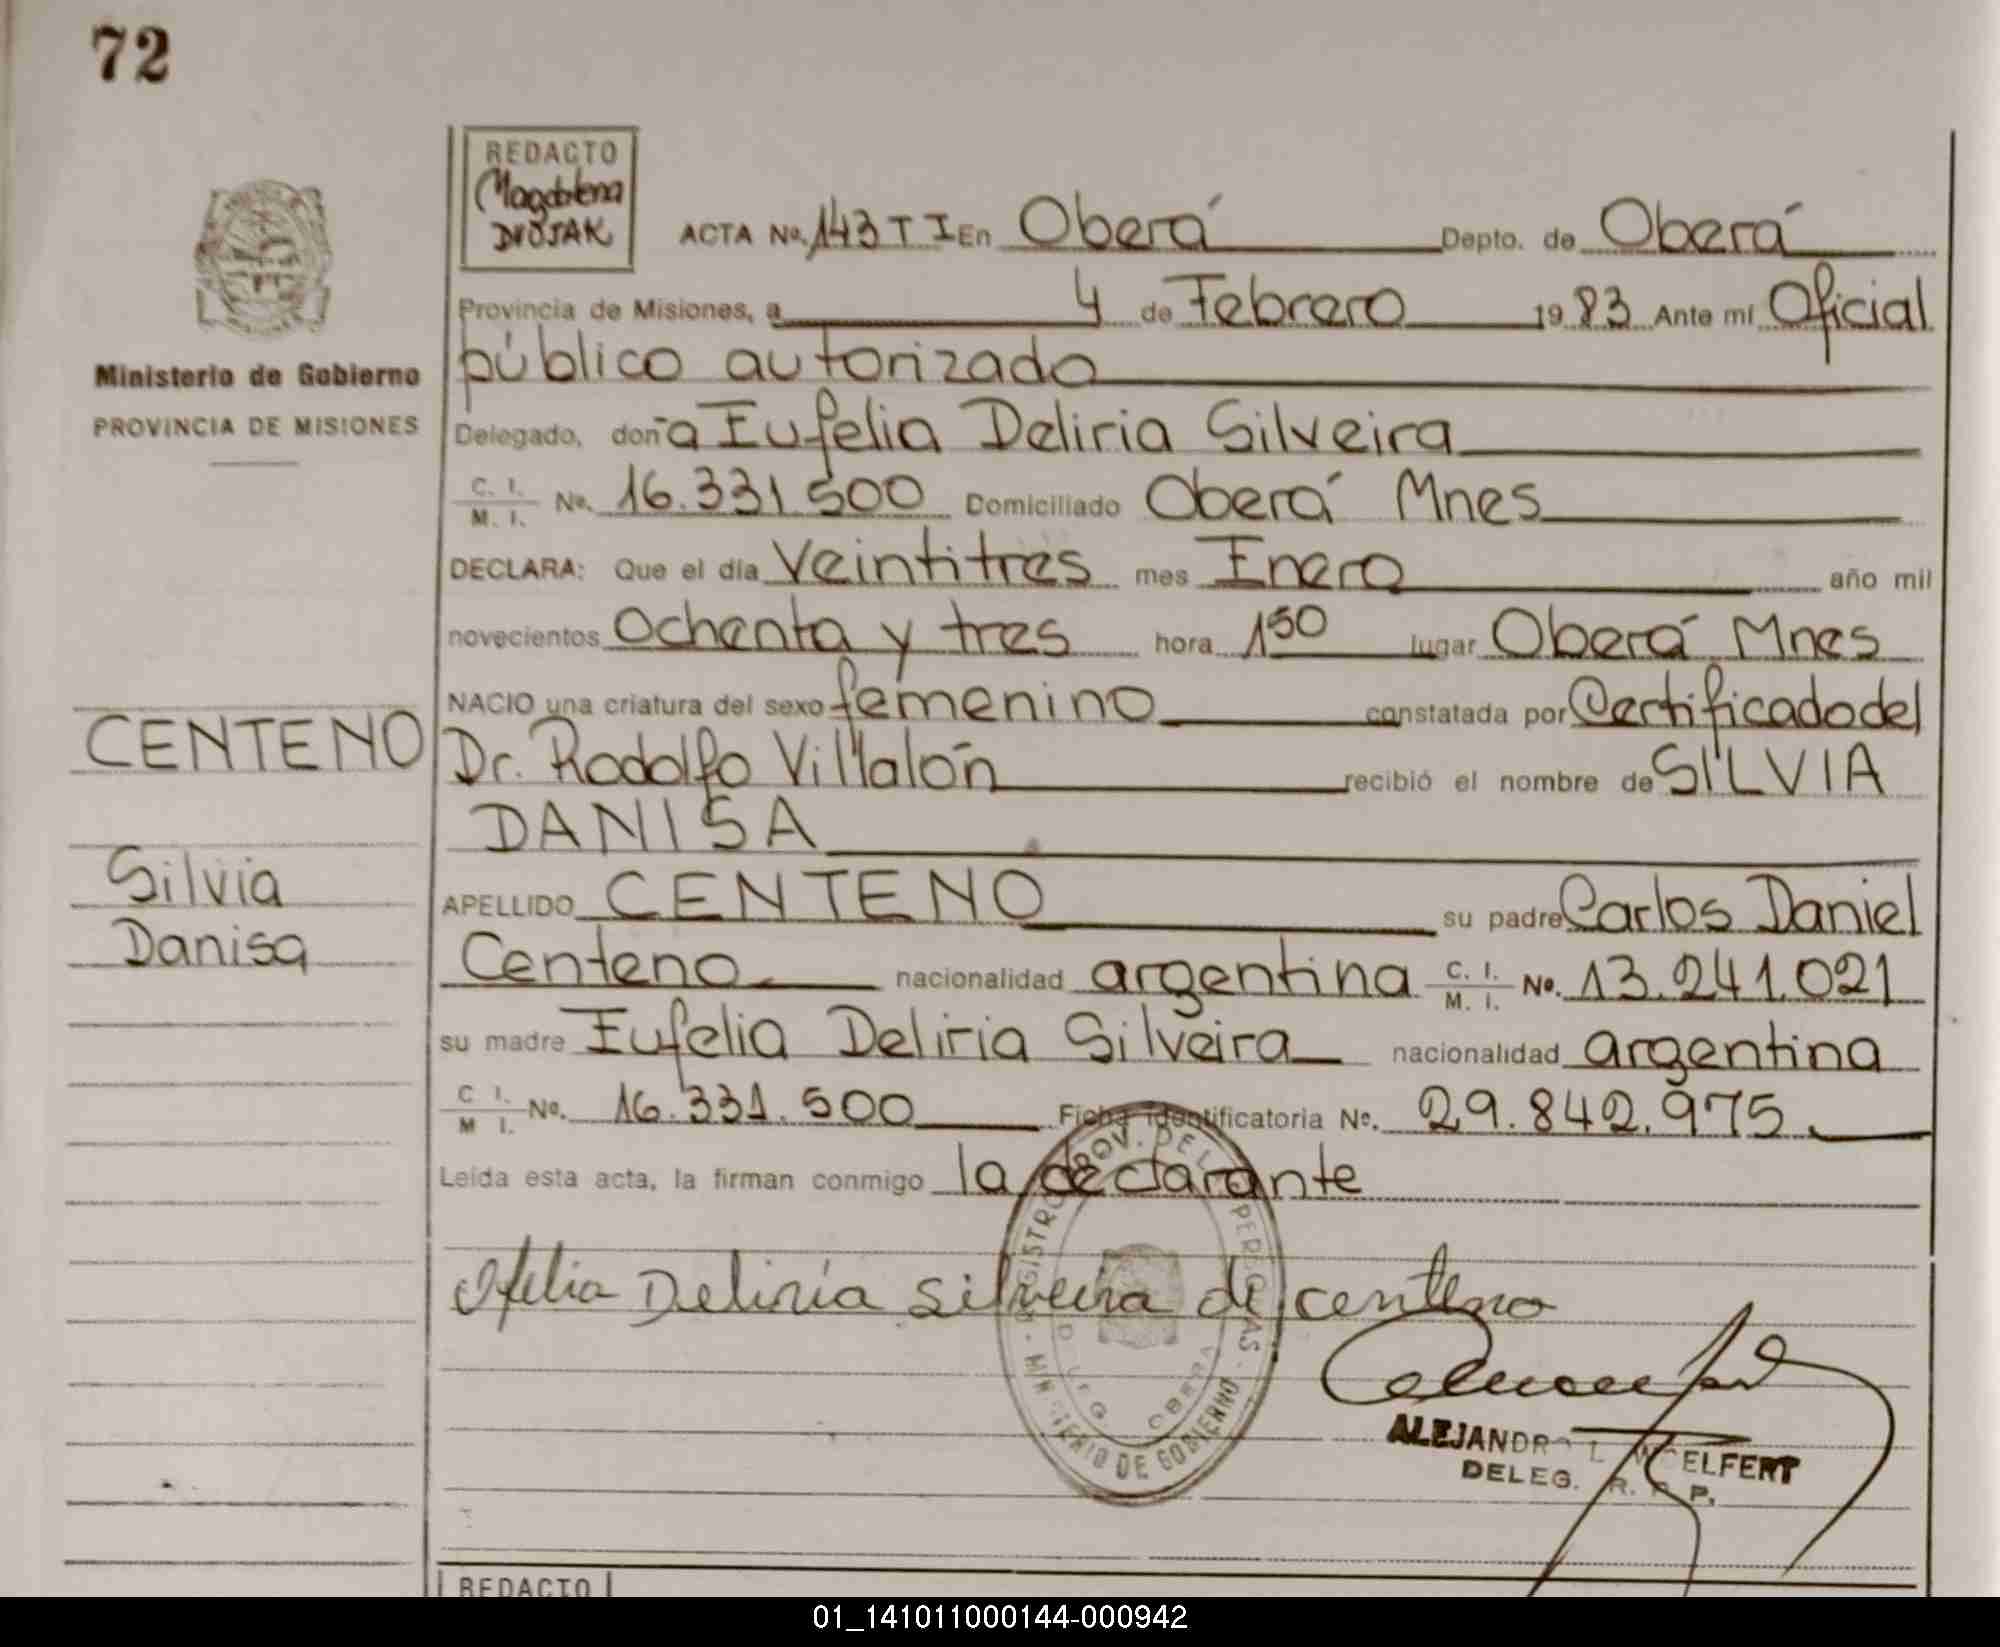 72
REDACTO
Magdalena
DVOJAK
ACTA No. 143 T I En Oberá Depto. de Oberá
Provincia de Misiones, a 4 de Febrero 1983 Ante mí Oficial
público autorizado
Ministerio de Gobierno
PROVINCIA DE MISIONES
Delegado, doña Eufelia Deliria Silveira
C. I. / M. I. No. 16.331.500 Domiciliado Oberá Mnes
DECLARA: Que el día Veintitres mes Enero año mil
novecientos Ochenta y tres hora 1 50 lugar Oberá Mnes
NACIO una criatura del sexo femenino constatada por Certificado del
CENTENO
Dr. Rodolfo Villalón recibió el nombre de SILVIA
DANISA
Silvia
Danisa
APELLIDO CENTENO su padre Carlos Daniel
Centeno nacionalidad argentina C. I. / M. I. No. 13.241.021
su madre Eufelia Deliria Silveira nacionalidad argentina
C I. / M I. No. 16.331.500 Ficha identificatoria No. 29.842.975
Leída esta acta, la firman conmigo la declarante
Ofelia Deliria silveira de centeno
REGISTRO PROV. DE LAS PERSONAS
MINISTERIO DE GOBIERNO
DELEG. OBERA
ALEJANDRO L. WOELFERT
DELEG. R. P. P.
REDACTO
01_141011000144-000942